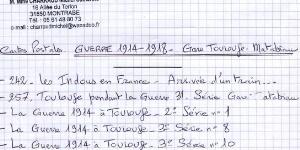 M. Mme CHARRAUD
16 Allée du Torlon
31850 MONTRABE
Tél : 05 61 48 90 73
e-mail : charraudmichel@wanadoo.fr
Cartes Postales GUERRE 1914-1918 - Gare Toulouse-Matabiau
- 242. Les Indous en France - Arrivée d'un train...
- 257. Toulouse pendant la Guerre 31. Série Gare Matabiau
- La Guerre 1914 à Toulouse. 2e Série n° 1
- La Guerre 1914 à Toulouse. 3e Série n° 8
- La Guerre 1914 à Toulouse. 3e Série n° 10